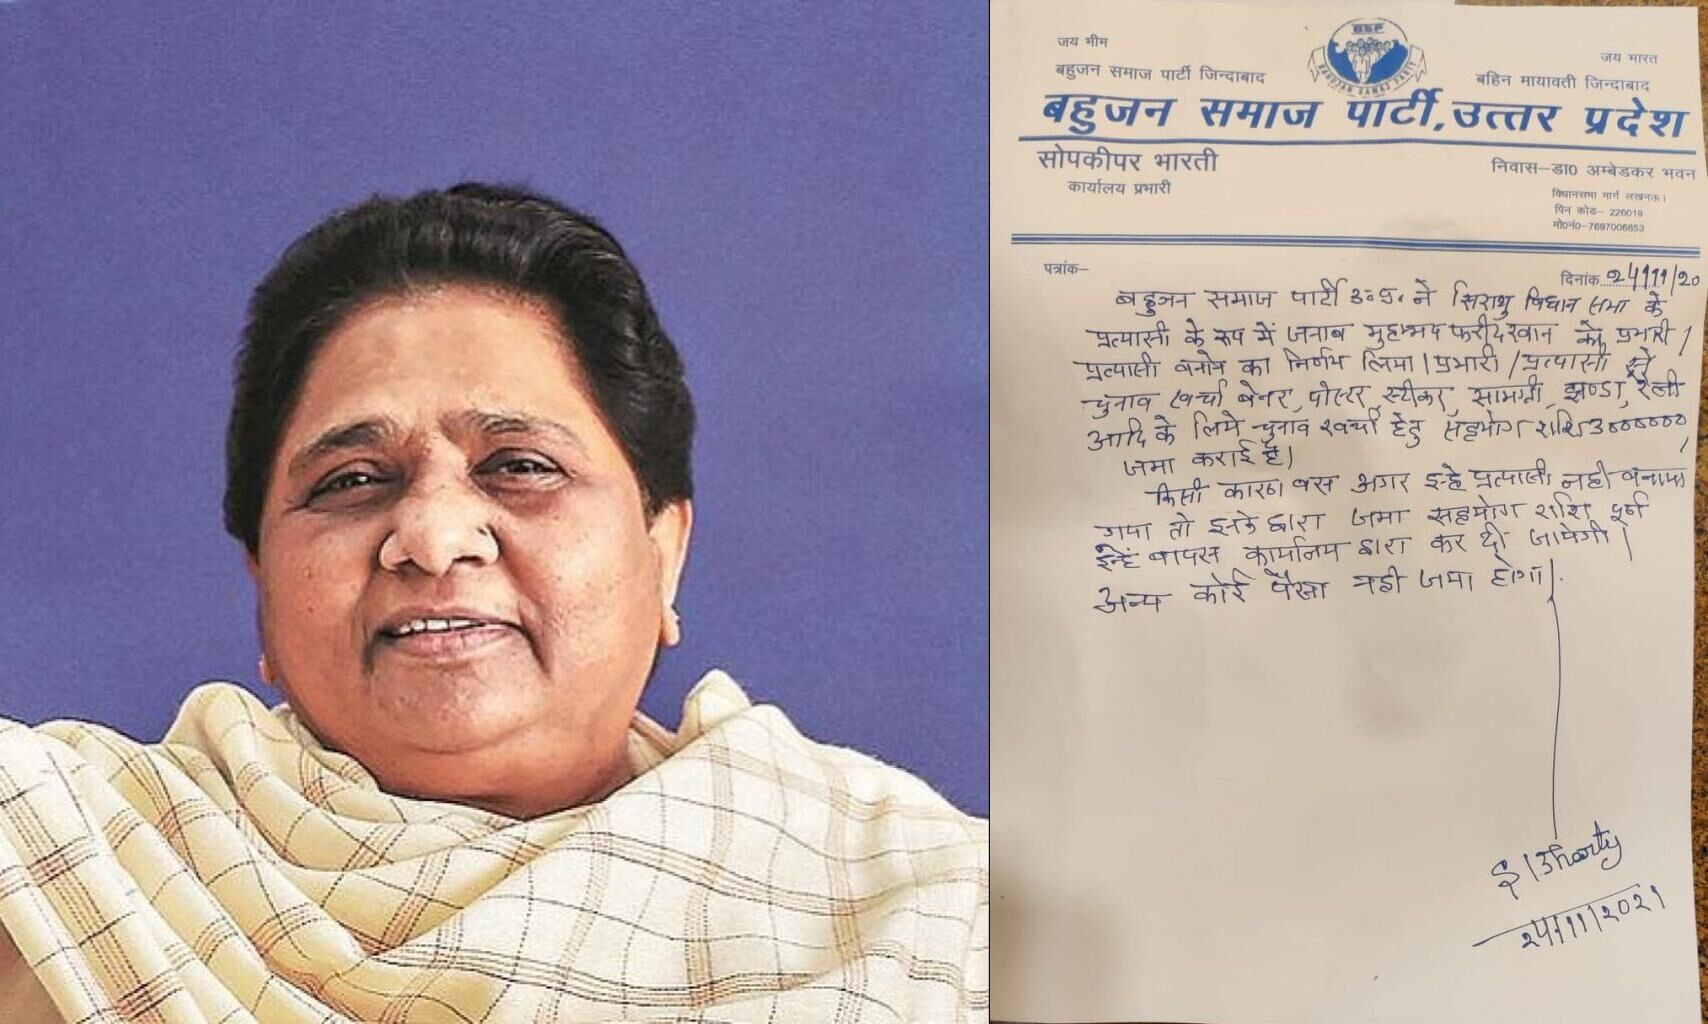 जय भीम
जय भारत
BSP
BAHUJAN SAMAJ PARTY
बहुजन समाज पार्टी जिन्दाबाद
बहिन मायावती जिन्दाबाद
बहुजन समाज पार्टी, उत्तर प्रदेश
सोपकीपर भारती
कार्यालय प्रभारी
निवास–डा0 अम्बेडकर भवन
विधानसभा मार्ग लखनऊ।
पिन कोड– 226019
मो0नं0–7697006853
पत्रांक–
दिनांक 24/11/20
बहुजन समाज पार्टी उ०प्र० ने सिराथु विधान सभा के
प्रत्यासी के रूप में जनाब मुहम्मद फरीद खान को प्रभारी/
प्रत्यासी बनाने का निर्णय लिया। प्रभारी/प्रत्यासी इन्हे
चुनाव खर्चा बेनर, पोस्टर, स्टीकर, सामग्री, झण्डा, रैली
आदि के लिये चुनाव खर्चा हेतु सहयोग राशि
जमा कराई है।
किसी कारण वस अगर इन्हे प्रत्यासी नही बनाया
गया तो इनके द्वारा जमा सहयोग राशि पूर्ण
इन्हें वापस कार्यालय द्वारा कर दी जायेगी।
अन्य कोई पैसा नही जमा होगा।
S/Bharty
24/11/2021